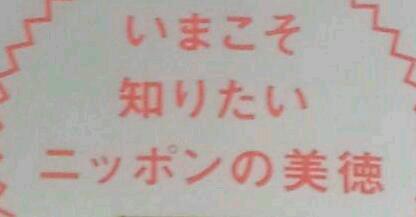 いまこそ
知りたい
ニッポンの美徳